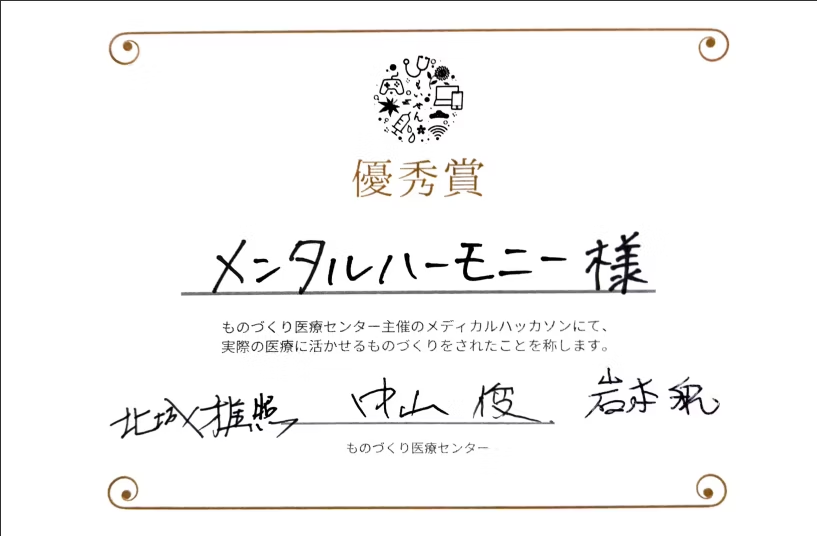 もいちゃん
優秀賞
メンタルハーモニー様
ものづくり医療センター主催のメディカルハッカソンにて、
実際の医療に活かせるものづくりをされたことを称します。
北城雅照 中山俊 岩本
ものづくり医療センター